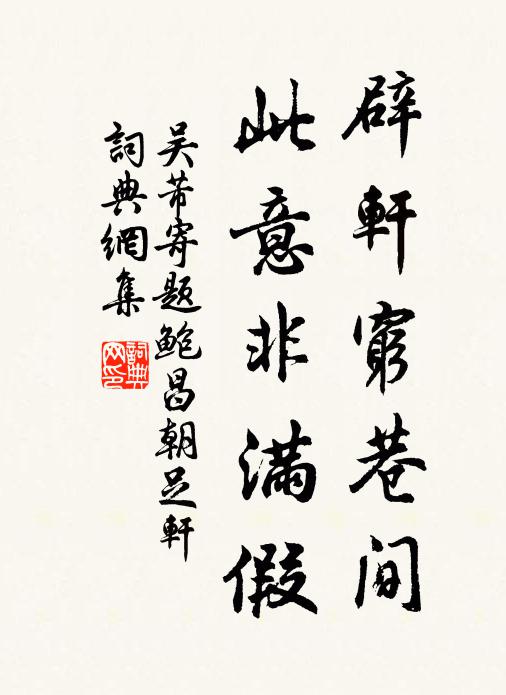 辟軒窮巷間
此意非滿假
吴芾寄題鮑昌朝足軒
詞典網集
詞典
网印